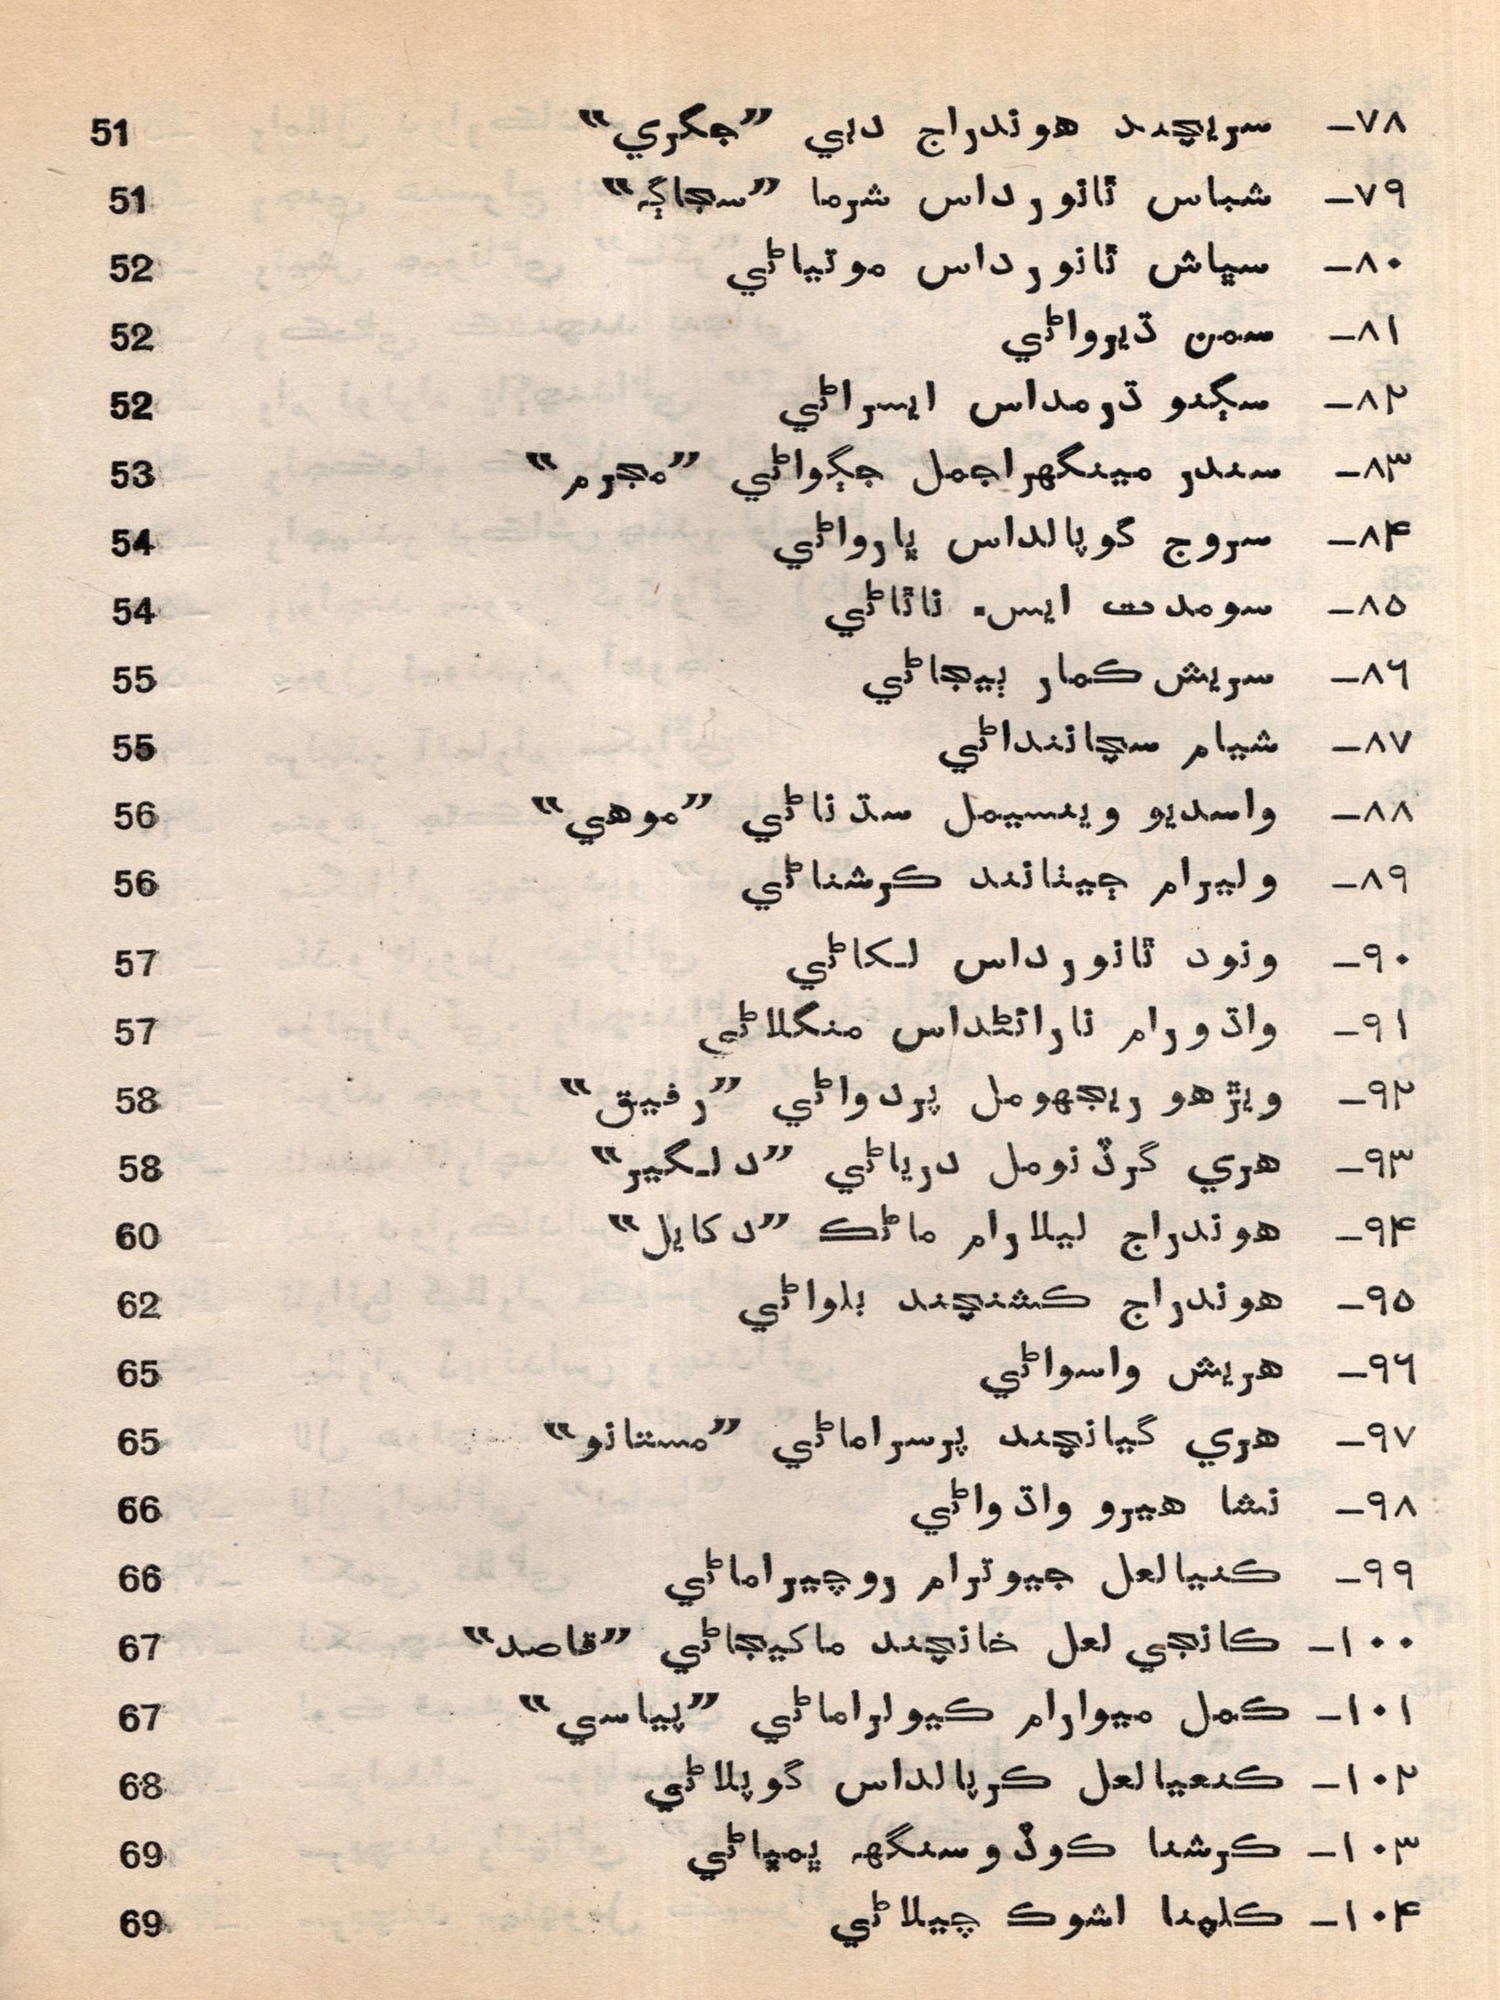 ۷۸– سريچند هوندراج دٻي ”جگري“ 51
۷۹– شباس ٿانورداس شرما ”سڃاڳہ“ 51
۸۰– سڀاش ٿانورداس موتياڻي 52
۸۱– سمن ڌيرواڻي 52
۸۲– سڳنو ڌرمداس ايسراڻي 52
۸۳– سندر مينگهراجمل جڳواڻي ”مجرم“ 53
۸۴– سروج گوپالداس ڀارواڻي 54
۸۵– سومدت ايس. ناٿاڻي 54
۸۶– سريش ڪمار ٻيجاڻي 55
۸۷– شيام سچاننداڻي 55
۸۸– واسديو وينسيمل سڌناڻي ”موهي“ 56
۸۹– وليرام ڄيٺانند ڪرشناڻي 56
۹۰– ونود ٿانورداس لکاڻي 57
۹۱– واڌورام نارائڻداس منگلاڻي 57
۹۲– ويڙهو ريجهومل پردواڻي ”رفيق“ 58
۹۳– هري گرڏنومل درياڻي ”دلگير“ 58
۹۴– هوندراج ليلارام ماڻڪ ”دکايل“ 60
۹۵– هوندراج ڪشنچند بلواڻي 62
۹۶– هريش واسواڻي 65
۹۷– هري گيانچند پرسراماڻي ”مستانو“ 65
۹۸– نشا هيرو واڌواڻي 66
۹۹– ڪنيالعل جيوترام روچيراماڻي 66
۱۰۰– ڪانجي لعل خانچند ماکيجاڻي ”قاصد“ 67
۱۰۱– ڪمل ميوارام ڪيولراماڻي ”پياسي“ 67
۱۰۲– ڪنعيالعل ڪرپالداس گوپلاڻي 68
۱۰۳– ڪرشنا ڪوڏوسنگهہ ڀمڀاڻي 69
۱۰۴– ڪلپنا اشوڪ چيلاڻي 69